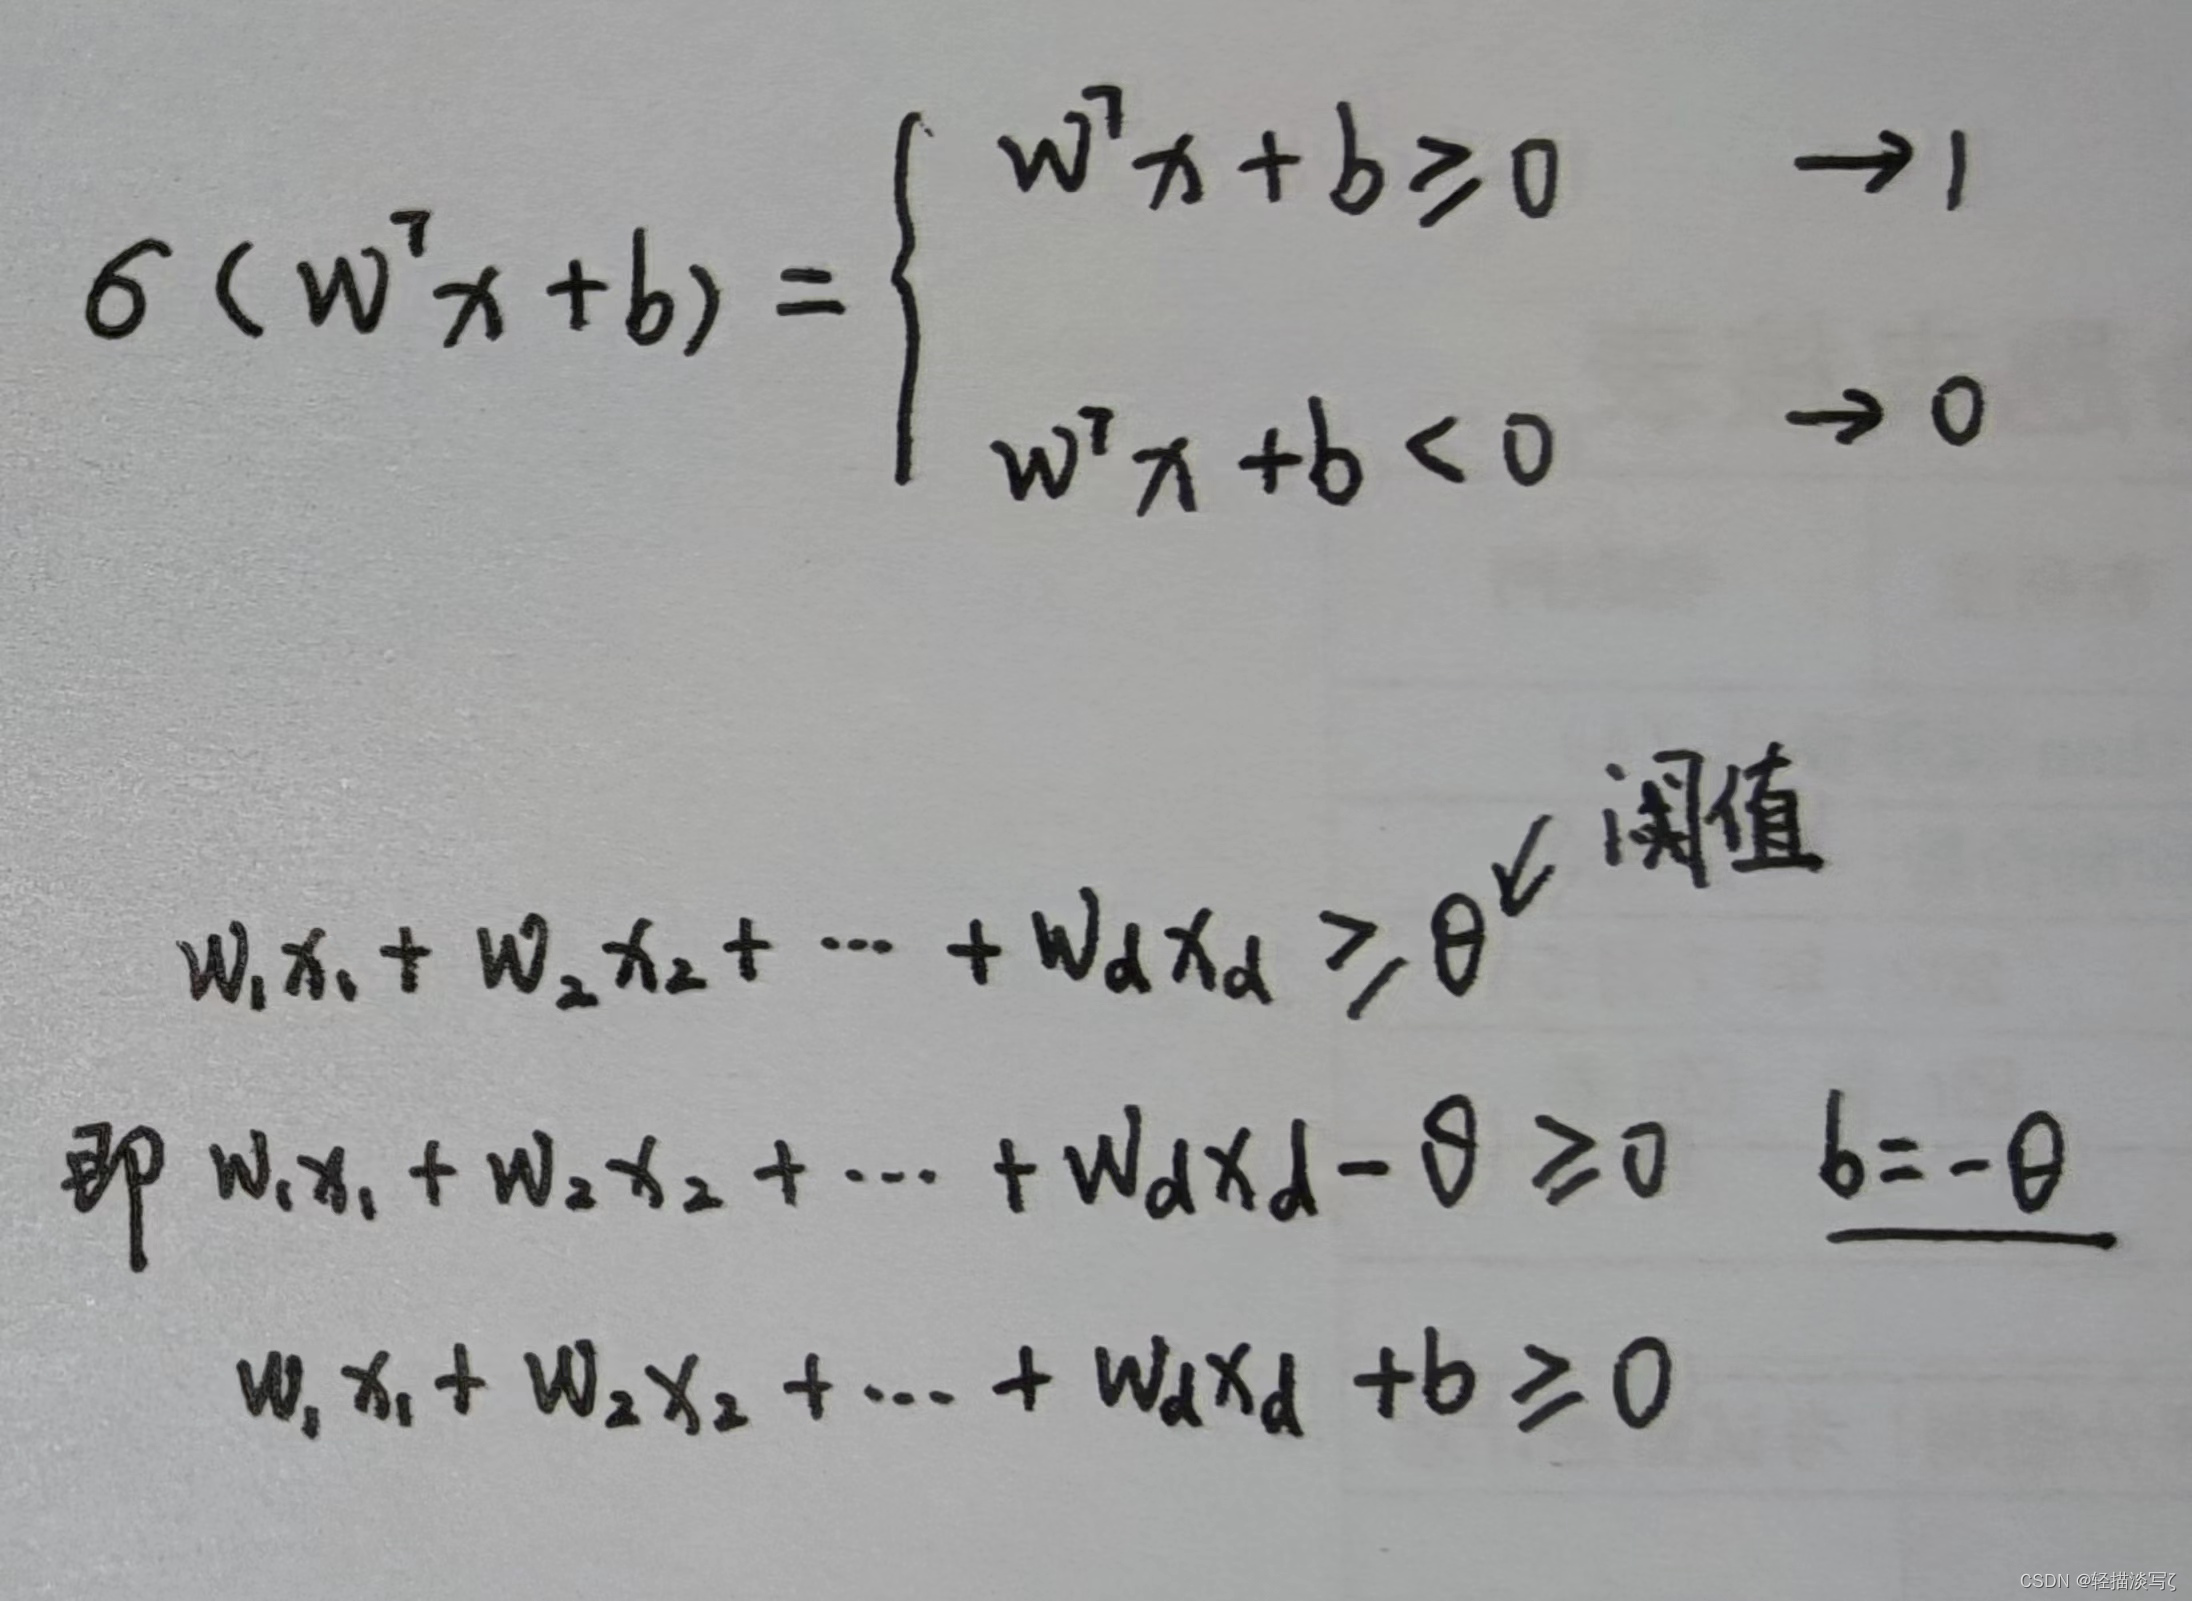 σ(wᵀx+b) = { wᵀx+b≥0 →1
wᵀx+b<0 →0
阈值
w₁x₁+w₂x₂+⋯+w_dx_d≥θ
即 w₁x₁+w₂x₂+⋯+w_dx_d-θ≥0 b=-θ
w₁x₁+w₂x₂+⋯+w_dx_d+b≥0
CSDN @轻描淡写ζ